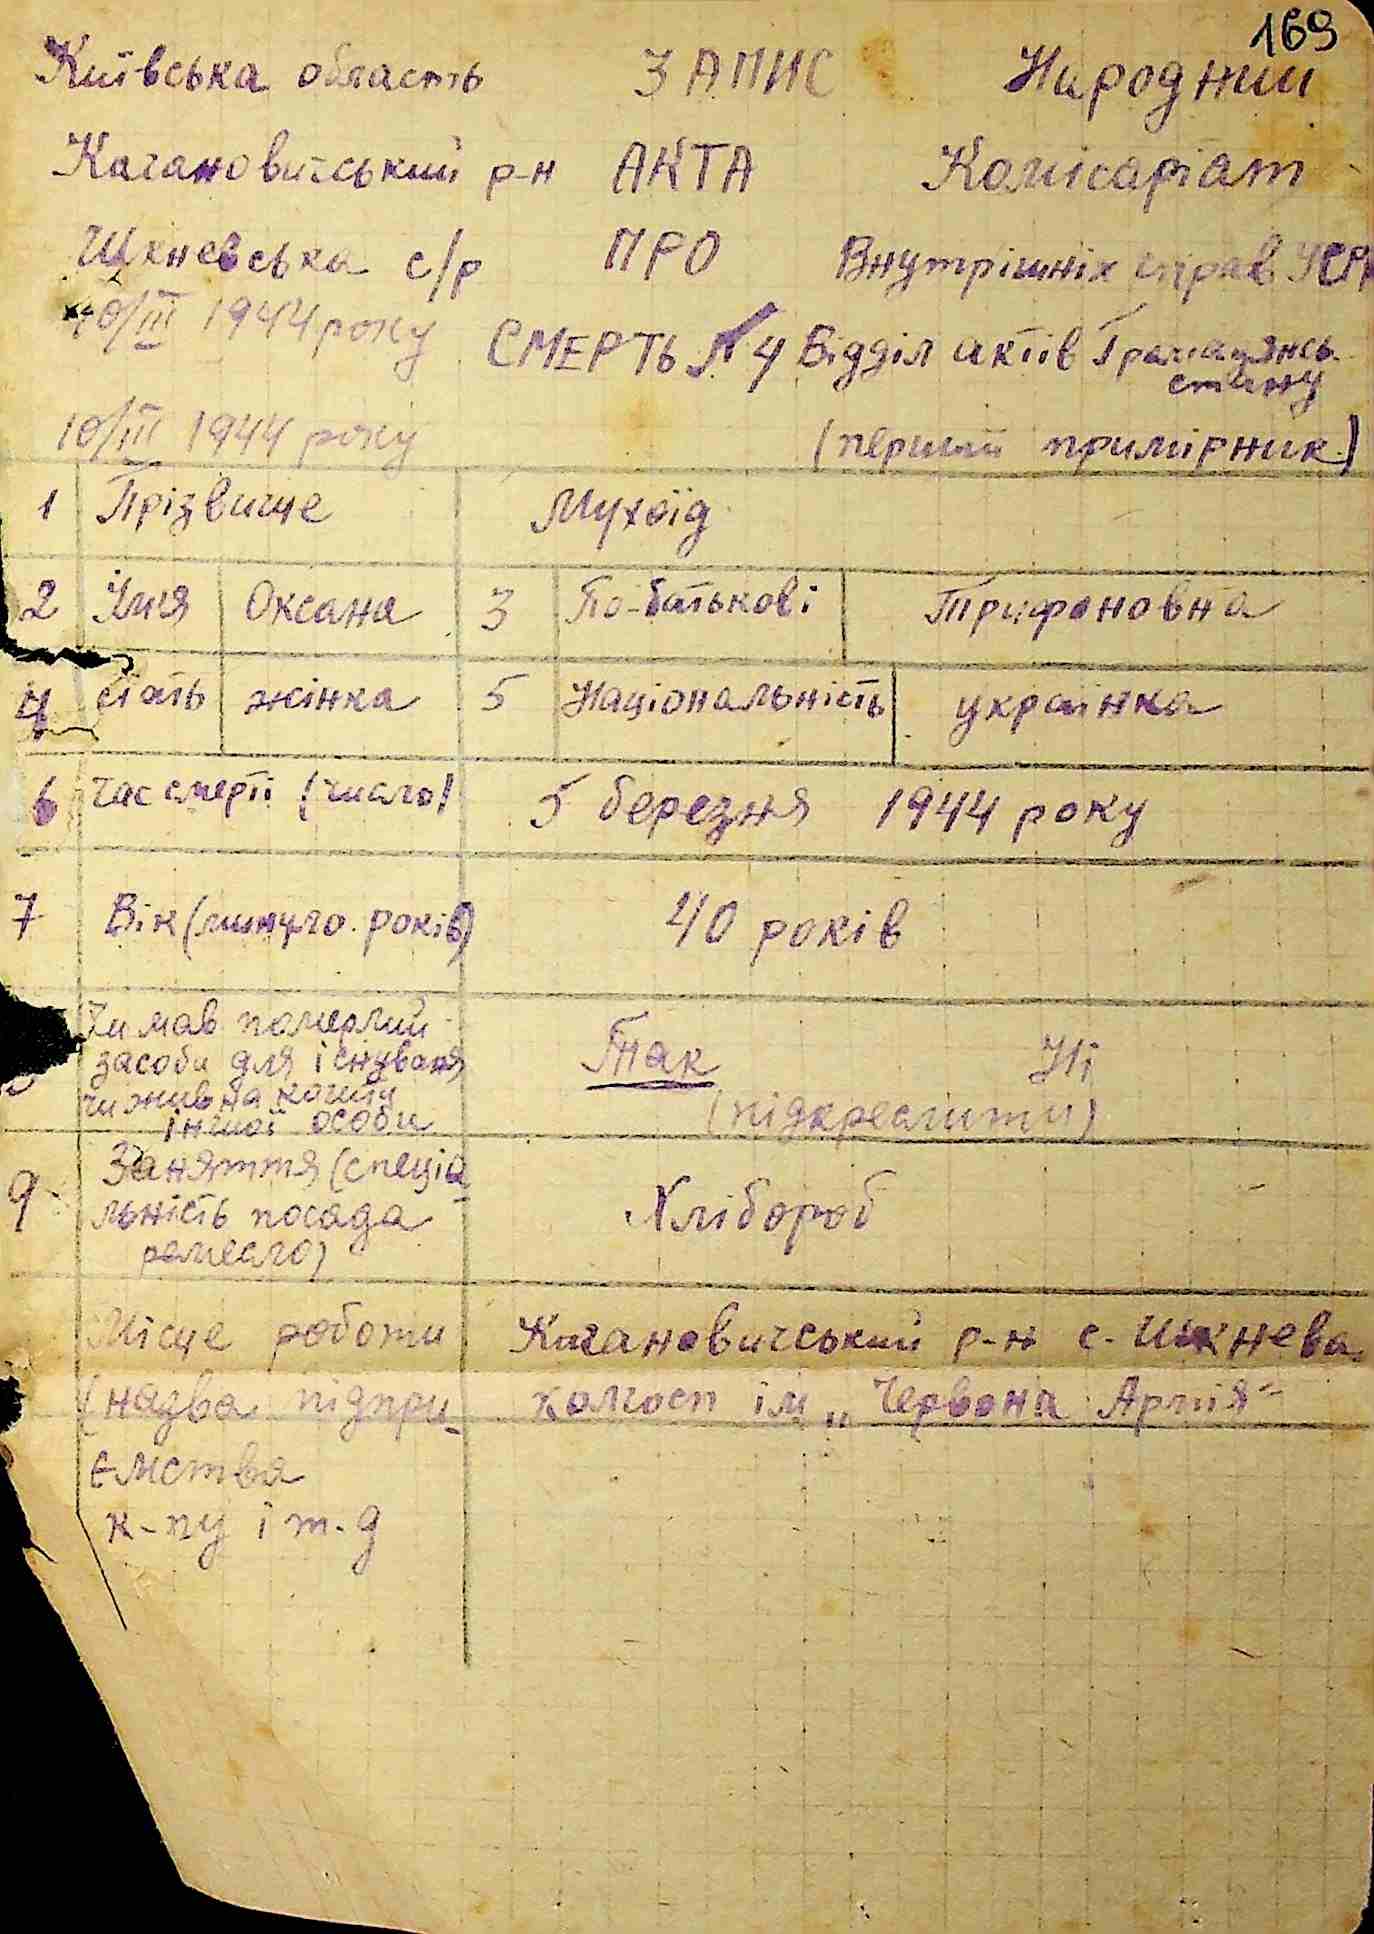 169
Київська область ЗАПИС Народний
Кагановичський р-н АКТА Комісаріат
Шкнєвська с/р ПРО Внутрішніх справ УСРР
10/III 1944 року СМЕРТЬ N 4 Відділ актів Громадянсь.
стану
10/III 1944 року (перший примірник)
1 Прізвище Мухоїд
2 Імя Оксана 3 По-батькові Трифоновна
4 стать жінка 5 Національність українка
6 Час смерті (число) 5 березня 1944 року
7 Вік (минуло років) 40 років
Чи мав померлий
засоби для існуваня Так Ні
чи жив на кошти (підкреслити)
іншої особи
9 Заняття (спеціа-
льність посада Хлібороб
ремесло)
Місце роботи Кагановичський р-н с. Шкнева
(назва підпри- колгосп ім „Червона Армія"
ємства
к-пу і т. д